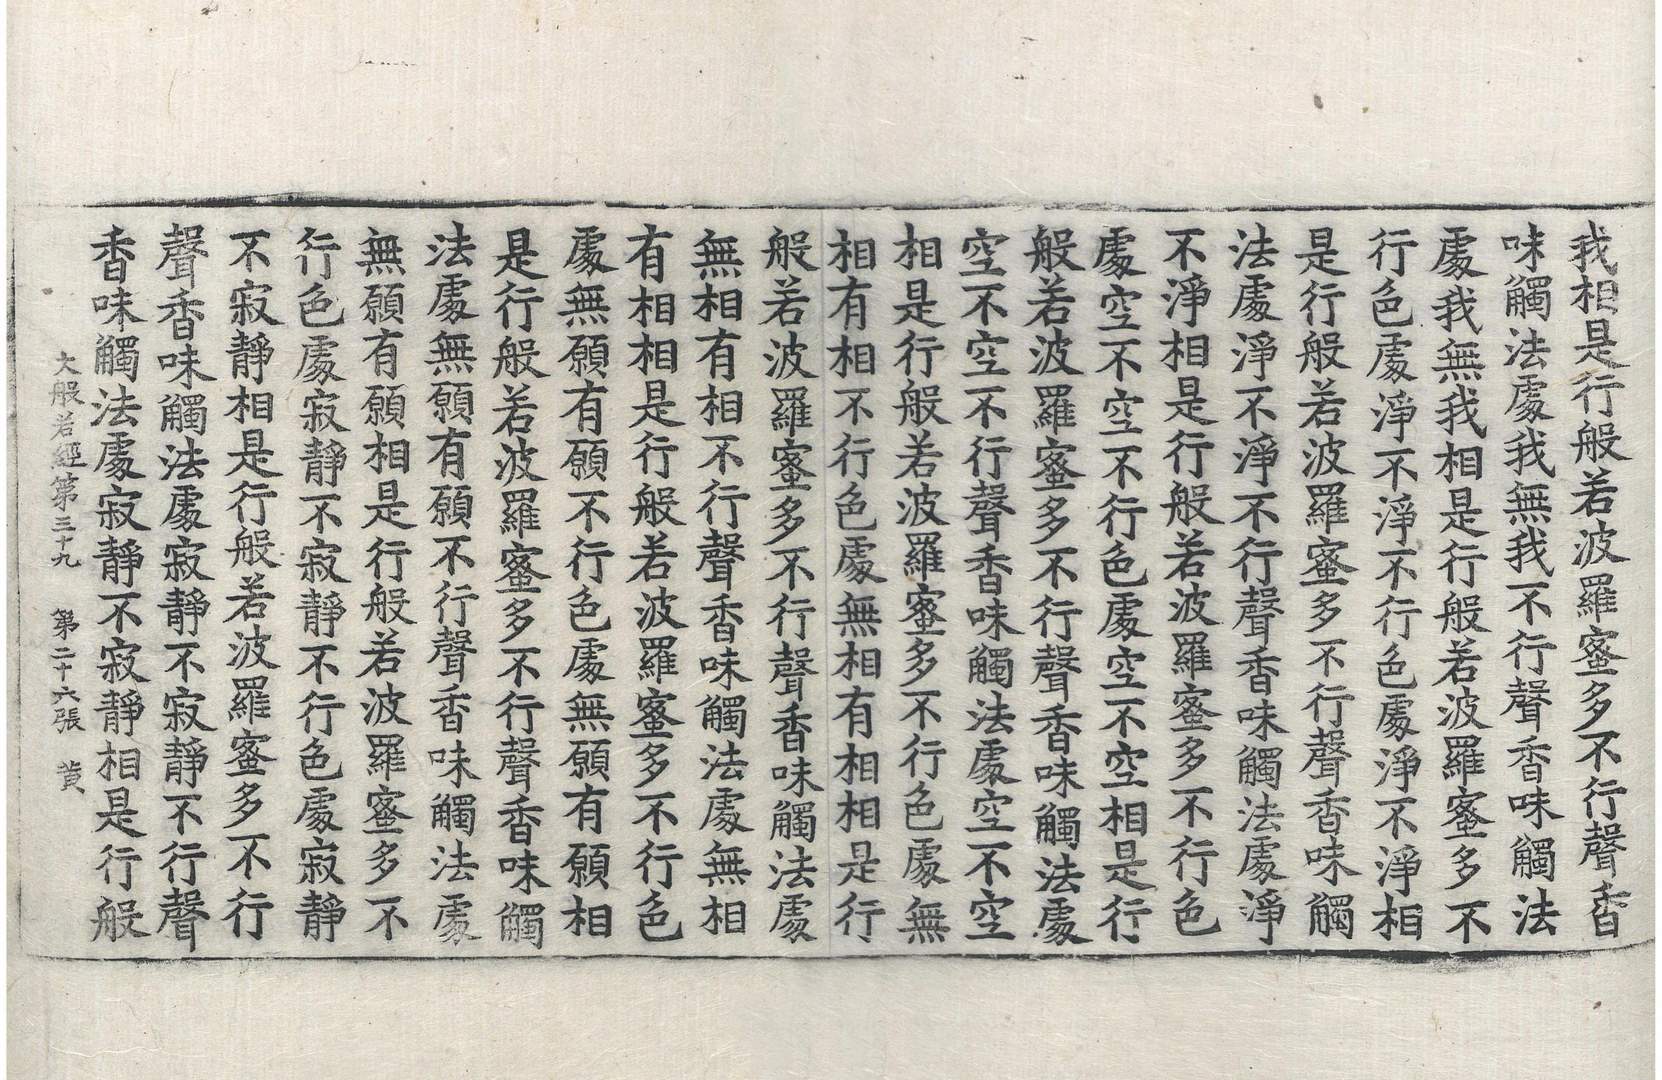 我相是行般若波羅蜜多不行聲香
味觸法處我無我不行聲香味觸法
處我無我相是行般若波羅蜜多不
行色處淨不淨不行色處淨不淨相
是行般若波羅蜜多不行聲香味觸
法處淨不淨不行聲香味觸法處淨
不淨相是行般若波羅蜜多不行色
處空不空不行色處空不空相是行
般若波羅蜜多不行聲香味觸法處
空不空不行聲香味觸法處空不空
相是行般若波羅蜜多不行色處無
相有相不行色處無相有相相是行
般若波羅蜜多不行聲香味觸法處
無相有相不行聲香味觸法處無相
有相相是行般若波羅蜜多不行色
處無願有願不行色處無願有願相
是行般若波羅蜜多不行聲香味觸
法處無願有願不行聲香味觸法處
無願有願相是行般若波羅蜜多不
行色處寂靜不寂靜不行色處寂靜
不寂靜相是行般若波羅蜜多不行
聲香味觸法處寂靜不寂靜不行聲
香味觸法處寂靜不寂靜相是行般
大般若經第三十九 第二十六張 黄